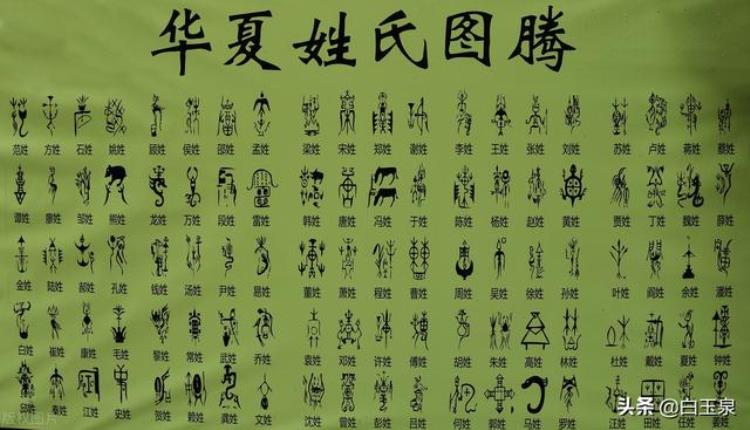 华夏姓氏图腾
范姓 方姓 石姓 姚姓 顾姓 侯姓 邵姓 孟姓 梁姓 宋姓 郑姓 谢姓 李姓 王姓 张姓 刘姓 苏姓 卢姓 蒋姓 蔡姓
谭姓 廖姓 邹姓 熊姓 龙姓 万姓 段姓 雷姓 韩姓 唐姓 冯姓 于姓 陈姓 杨姓 赵姓 黄姓 贾姓 丁姓 魏姓 薛姓
金姓 陆姓 郝姓 孔姓 钱姓 汤姓 尹姓 易姓 董姓 萧姓 程姓 曹姓 周姓 吴姓 徐姓 孙姓 叶姓 阎姓 余姓 潘姓
白姓 崔姓 康姓 毛姓 黎姓 常姓 武姓 乔姓 袁姓 邓姓 许姓 傅姓 胡姓 朱姓 高姓 林姓 杜姓 戴姓 夏姓 钟姓
邱姓 秦姓 江姓 史姓 贺姓 赖姓 龚姓 文姓 沈姓 曾姓 彭姓 吕姓 何姓 郭姓 马姓 罗姓 汪姓 田姓 任姓 姜姓
版权图片
头条 @白玉泉